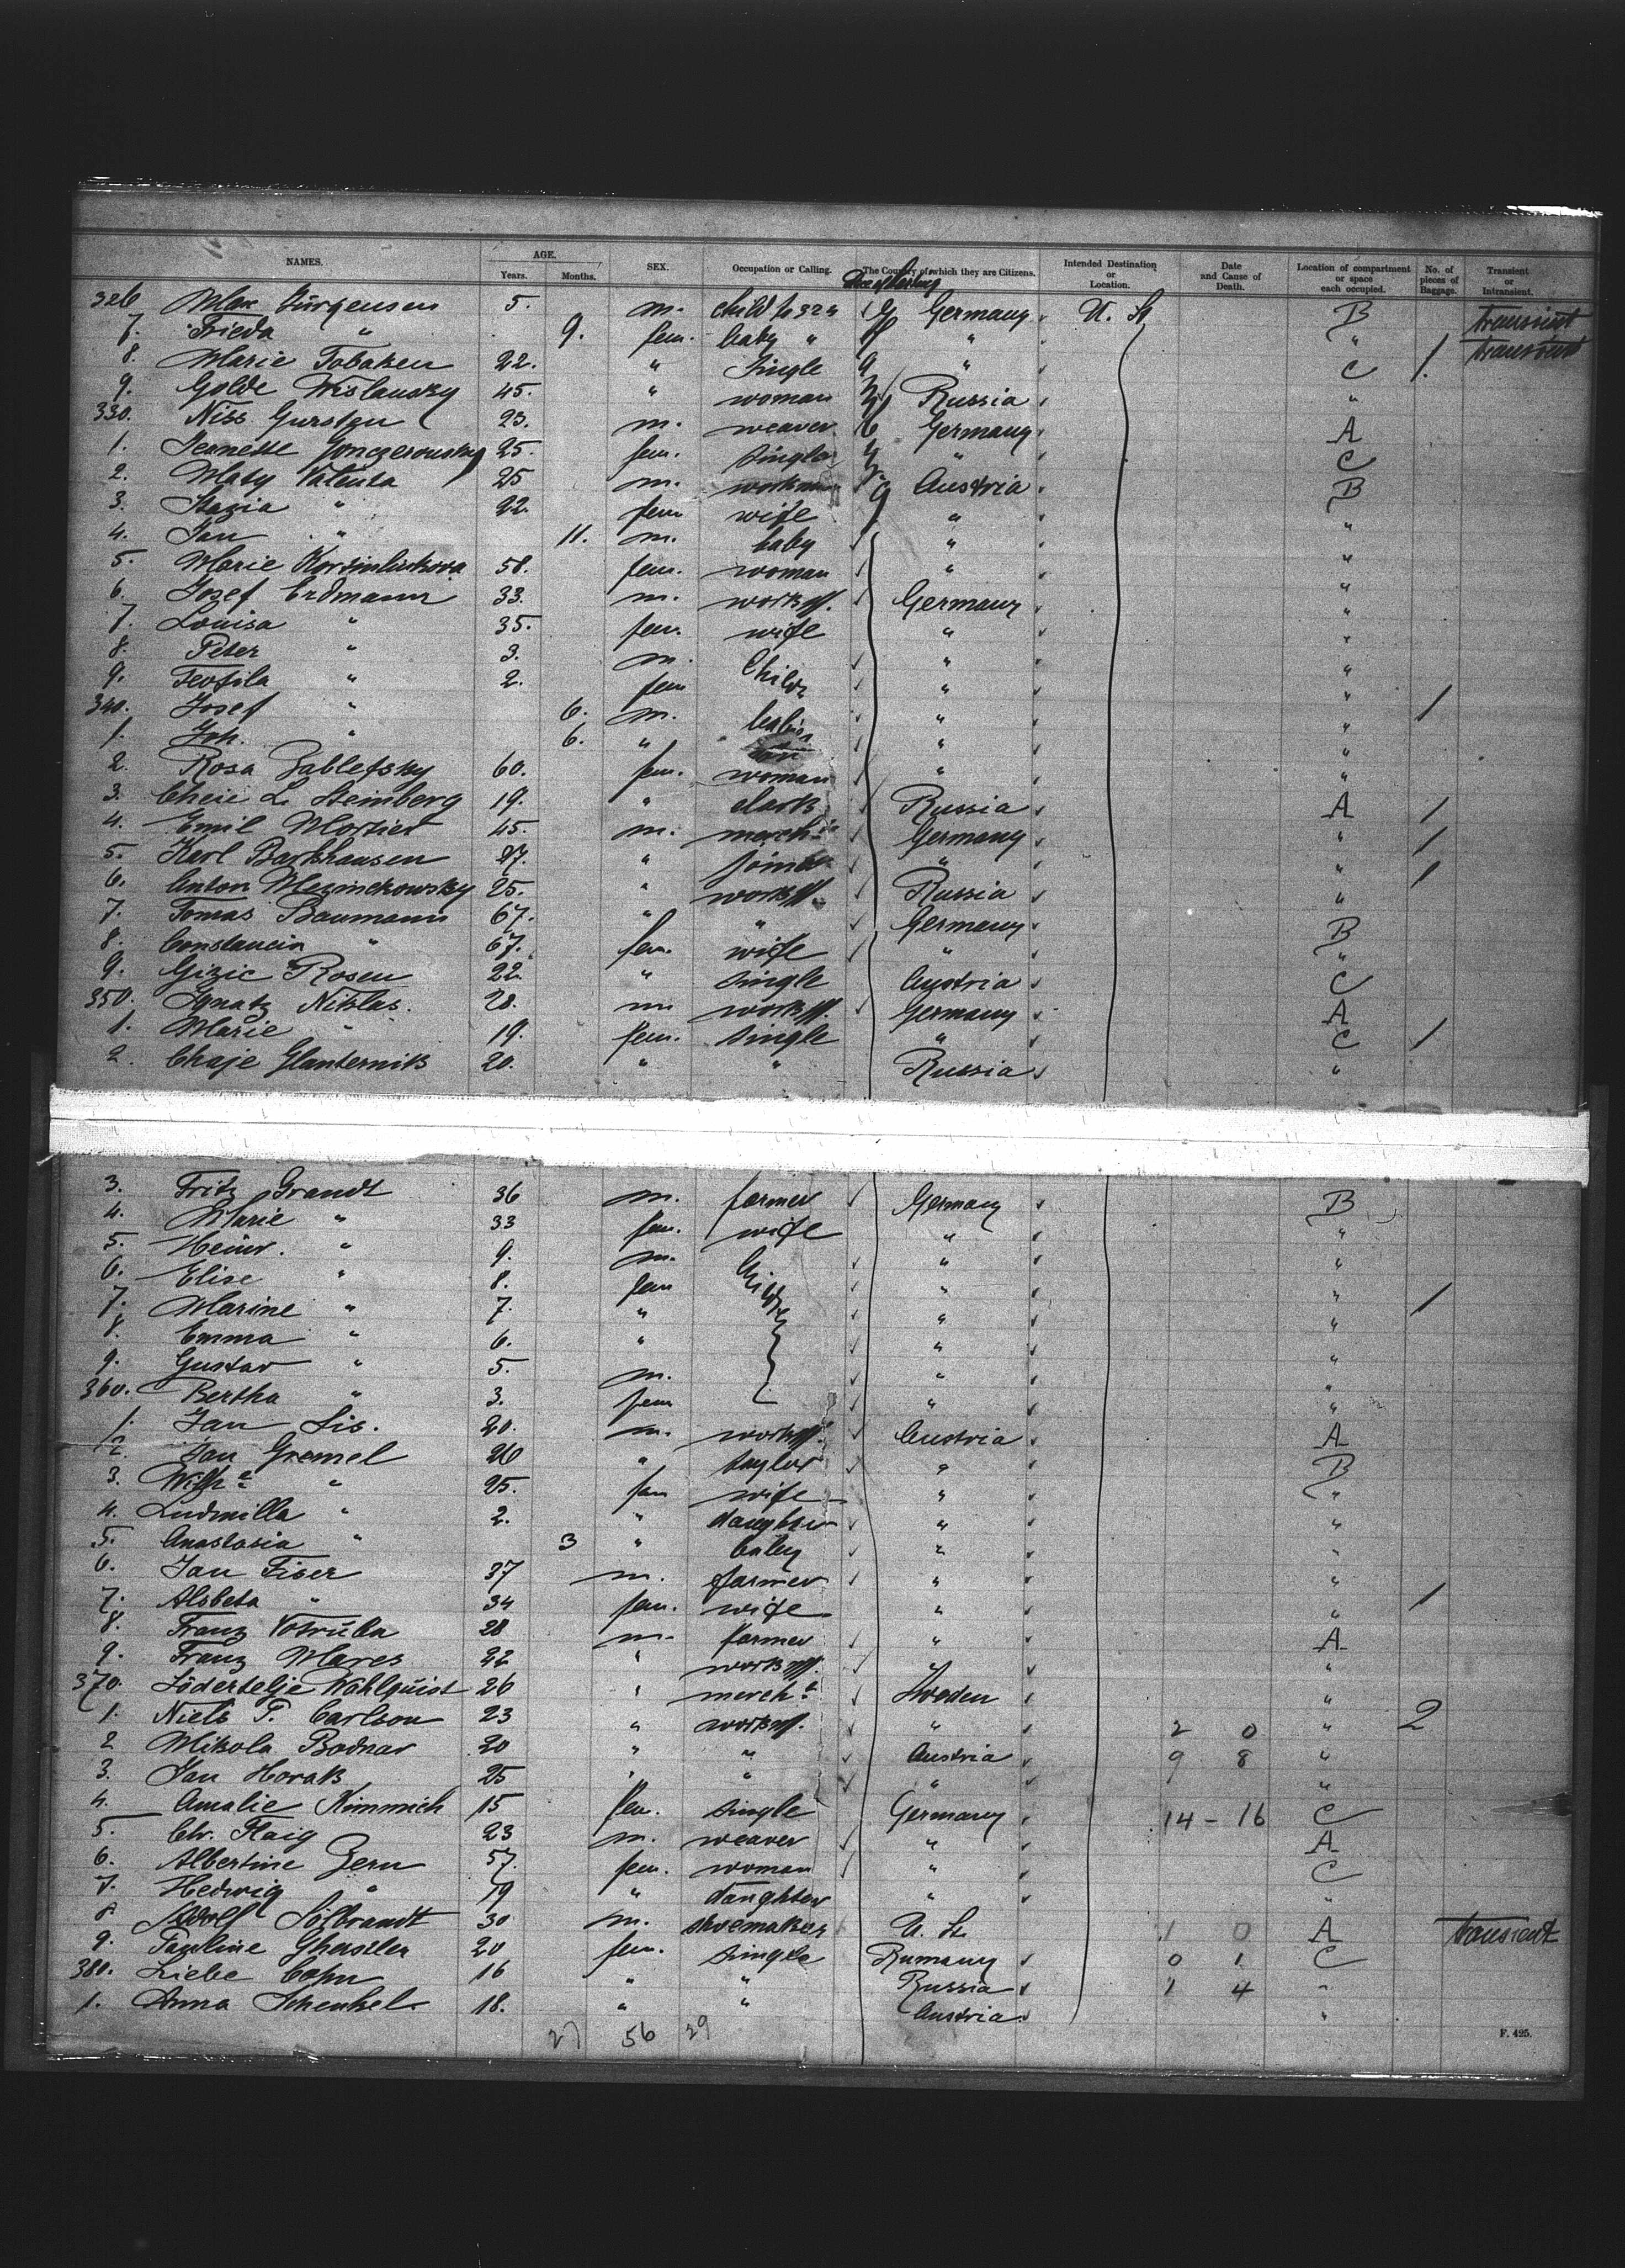 NAMES. AGE. Years. Months. SEX. Occupation or Calling. The Country of which they are Citizens. Intended Destination or Location. Date and Cause of Death. Location of compartment or space each occupied. No. of pieces of Baggage. Transient or Intransient.
326 Max Jürgensen 5. m. child to 324 Germany U. St. B transient
7. Frieda " 9. fem. baby " " " transient
8. Marie Tobaken 22. " single " C 1.
9. Golde Wislansky 45. " woman Russia "
330. Niss 23. m. weaver Germany A
1. Jeanette 25. fem. single " C
2. Maty Valenta 25 m. workm Austria B
3. Stazia " 22. fem wife " "
4. Jan " 11. m. baby " "
5. Marie 58. fem. woman " "
6. Josef Erdmann 33. m. workm. Germany "
7. Louisa " 35. fem. wife " "
8. Peter " 3. m. Childr " "
9. Teofila " 2. fem " "
340. Josef " 6. m. babies " " 1
1. Joh. " 6. " " "
2. Rosa Jabletsky 60. fem. woman " "
3. Cheie L. Steinberg 19. " clark Russia A 1
4. Emil Mortier 45. m. merch. Germany " 1
5. Karl Barkhausen 27. " joiner " " 1
6. Anton 25. " workm. Russia "
7. Tomas Baumann 67. " " Germany B
8. Constancia " 67. fem. wife " "
9. Gizic Rosen 22. " single Austria C
350. Ignatz Niklas. 28. m workm. Germany A
1. Marie " 19. fem. single " C 1
2. Chaje Glanternik 20. " " Russia "
3. Fritz Grandt 36 m. farmer Germany B
4. Marie " 33 fem. wife " "
5. Heinr. " 9. m. Childr " "
6. Elise " 8. fem " "
7. Marine " 7. " " " 1
8. Emma " 6. " " "
9. Gustav " 5. m. " "
360. Bertha " 3. fem " "
1. Jan Lis. 20. m. workm. Austria A
2. Jan Gremel 26 " taylor " B
3. Wilh " 25. fem wife " "
4. Ludmilla " 2. " daughter " "
5. Anastasia " 3 " baby " "
6. Jan Fiser 37 m. farmer " "
7. Alsbeta " 34 fem. wife " " 1
8. Franz Votruba 28 m. farmer " A
9. Franz Mares 22 " workm. " "
370. Södertelje Wahlquist 26 " merch. Sweden "
1. Niels P. Carlson 23 " workm. " 2 0 " 2
2 Mikola Bodnar 20 " " Austria 9 8 "
3. Jan Horak 25 " " " "
4. Amalie Kimmich 15 fem. single Germany 14 - 16 C
5. Chr. Haig 23 m. weaver " A
6. Albertine Zern 57. fem. woman " C
7. Hedwig " 19 " daughter " "
8 Adolf Sölbrandt 30 m. shoemaker U. St. 1 0 A transient
9. Pauline 20 fem. single Rumany 0 1 C
380. Liebe Cohn 16 " " Russia 1 4 "
1. Anna Schenkel. 18. " " Austria "
27 56 29
F. 425.